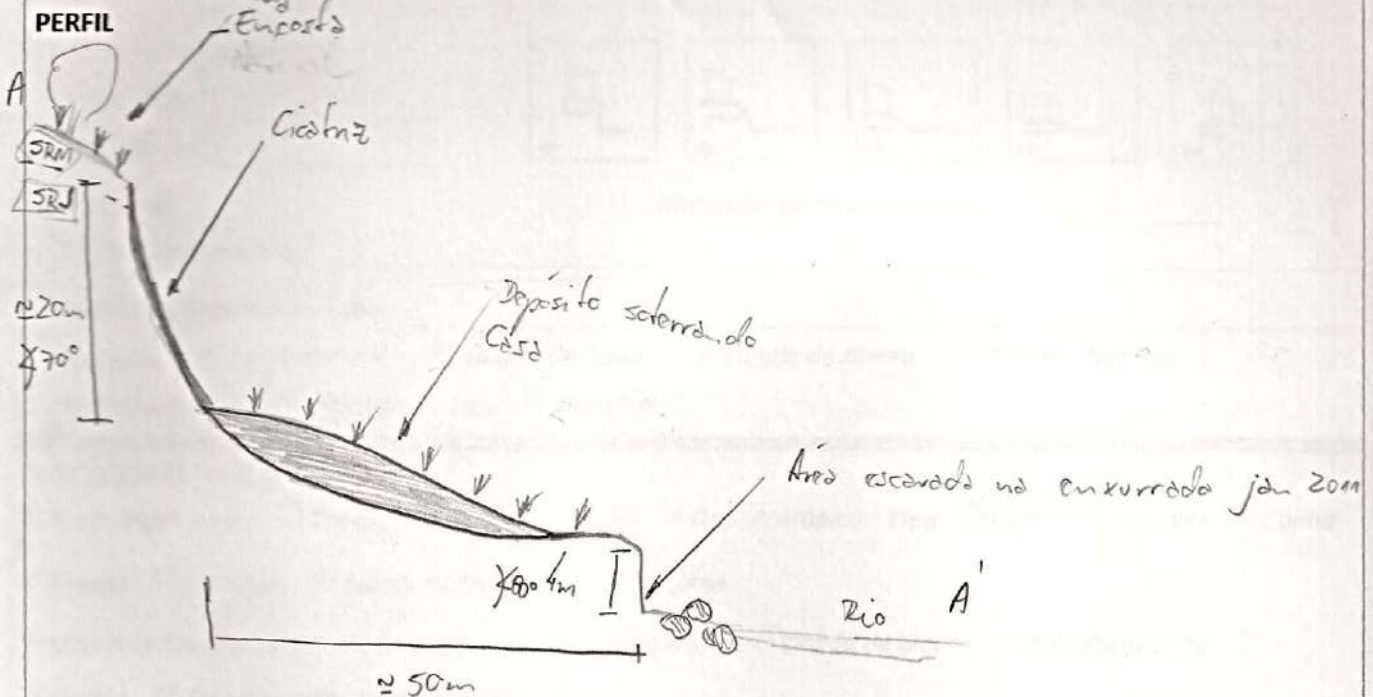 PERFIL
Encosta
A
Cicatriz
SRM
SRJ
≈20m
∡70°
Depósito soterrando
Casa
Área escavada na enxurrada jan 2011
4m
Rio
A'
≈ 50m